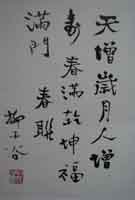 天增歲月人增
壽春滿乾坤福
滿門 春聯
柳子谷